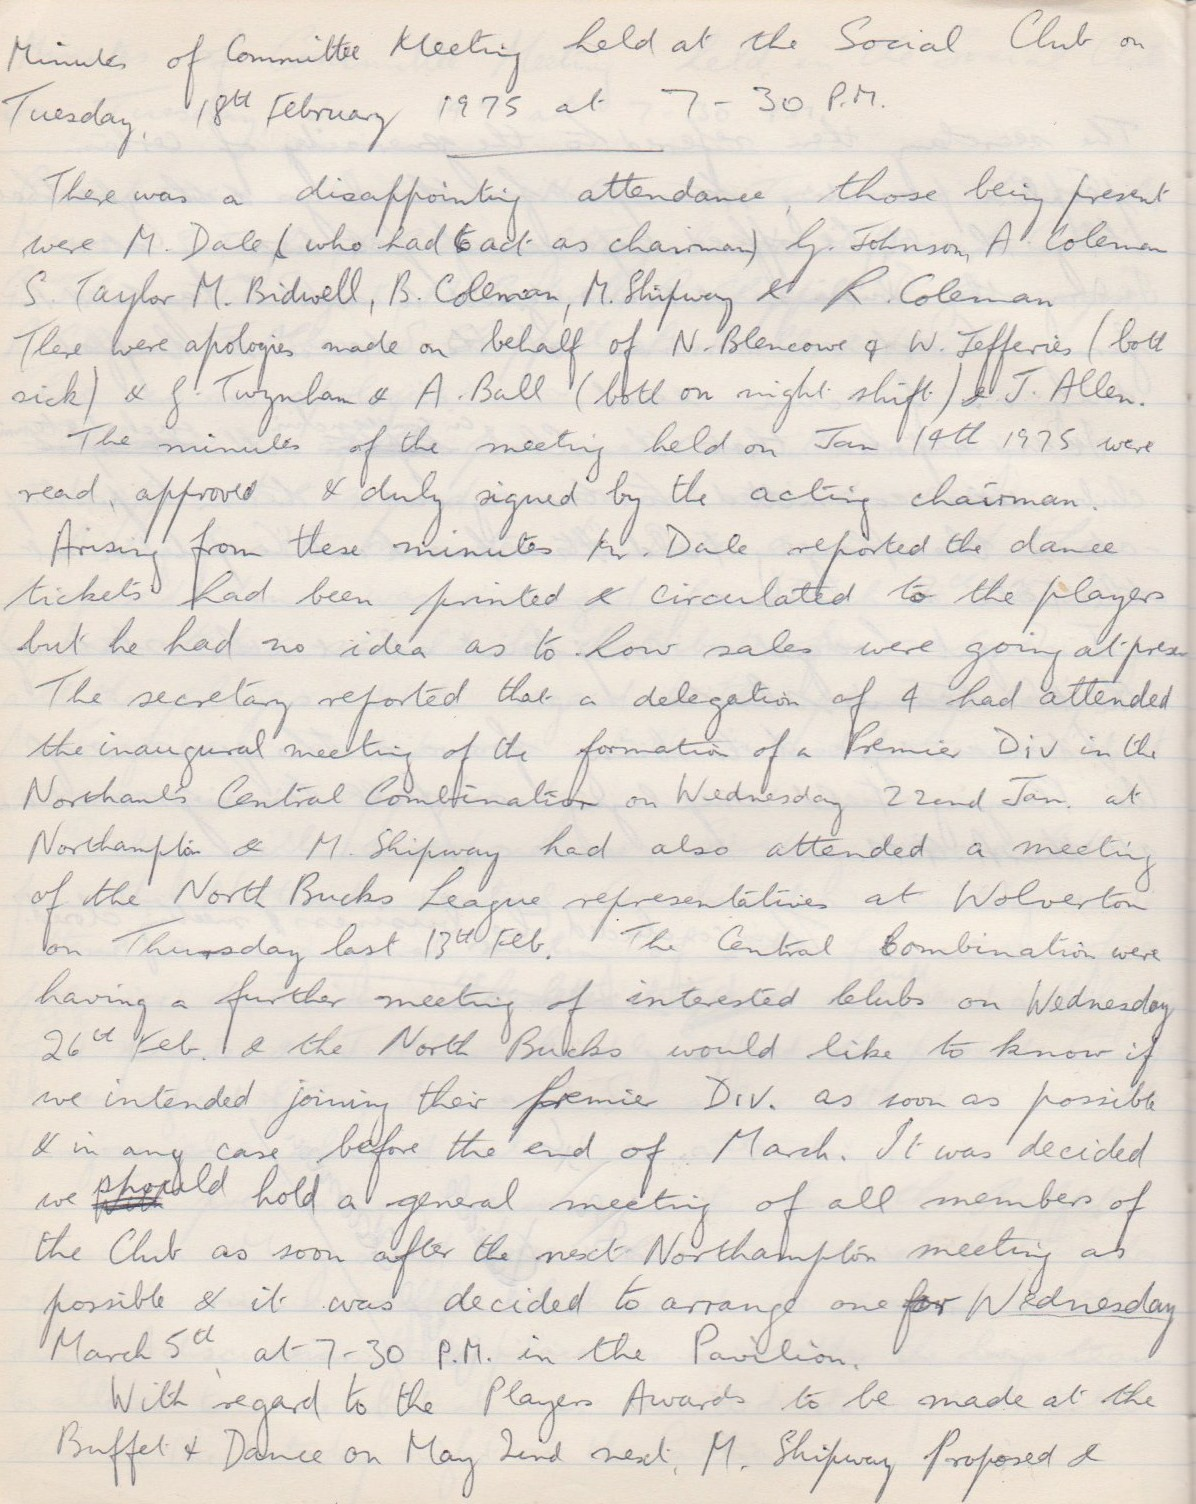 Minutes of Committee Meeting held at the Social Club on
Tuesday, 18th February 1975 at 7-30 P.M.
There was a disappointing attendance, those being present
were M. Dale (who had to act as chairman) G. Johnson, A. Coleman
S. Taylor M. Bidwell, B. Coleman, M. Shipway & R. Coleman
There were apologies made on behalf of N. Blencowe & W. Jefferies (both
sick) & G. Twynham & A. Ball (both on night shift) & J. Allen.
The minutes of the meeting held on Jan 14th 1975 were
read, approved & duly signed by the acting chairman.
Arising from these minutes Mr. Dale reported the dance
tickets had been printed & circulated to the players
but he had no idea as to how sales were going at presen
The secretary reported that a delegation of 4 had attended
the inaugural meeting of the formation of a Premier Div in the
Northants Central Combination on Wednesday 22nd Jan. at
Northampton & M. Shipway had also attended a meeting
of the North Bucks League representatives at Wolverton
on Thursday last 13th Feb. The Central Combination were
having a further meeting of interested Clubs on Wednesday
26th Feb. & the North Bucks would like to know if
we intended joining their Premier Div. as soon as possible
& in any case before the end of March. It was decided
we should hold a general meeting of all members of
the Club as soon after the next Northampton meeting as
possible & it was decided to arrange one for Wednesday
March 5th, at 7-30 P.M. in the Pavilion.
With regard to the Players Awards to be made at the
Buffet & Dance on May 2nd next, M. Shipway Proposed &